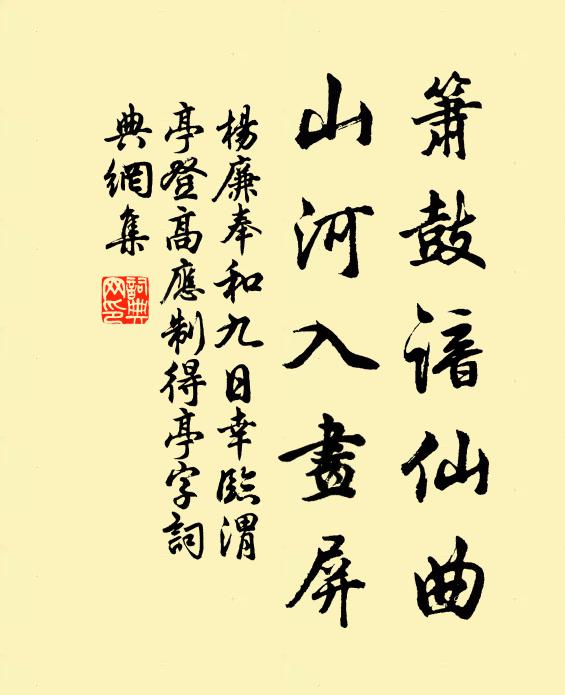 簫鼓諳仙曲
山河入畫屏
楊廉奉和九日幸臨渭
亭登高應制得亭字詞
典網集
詞典
网印